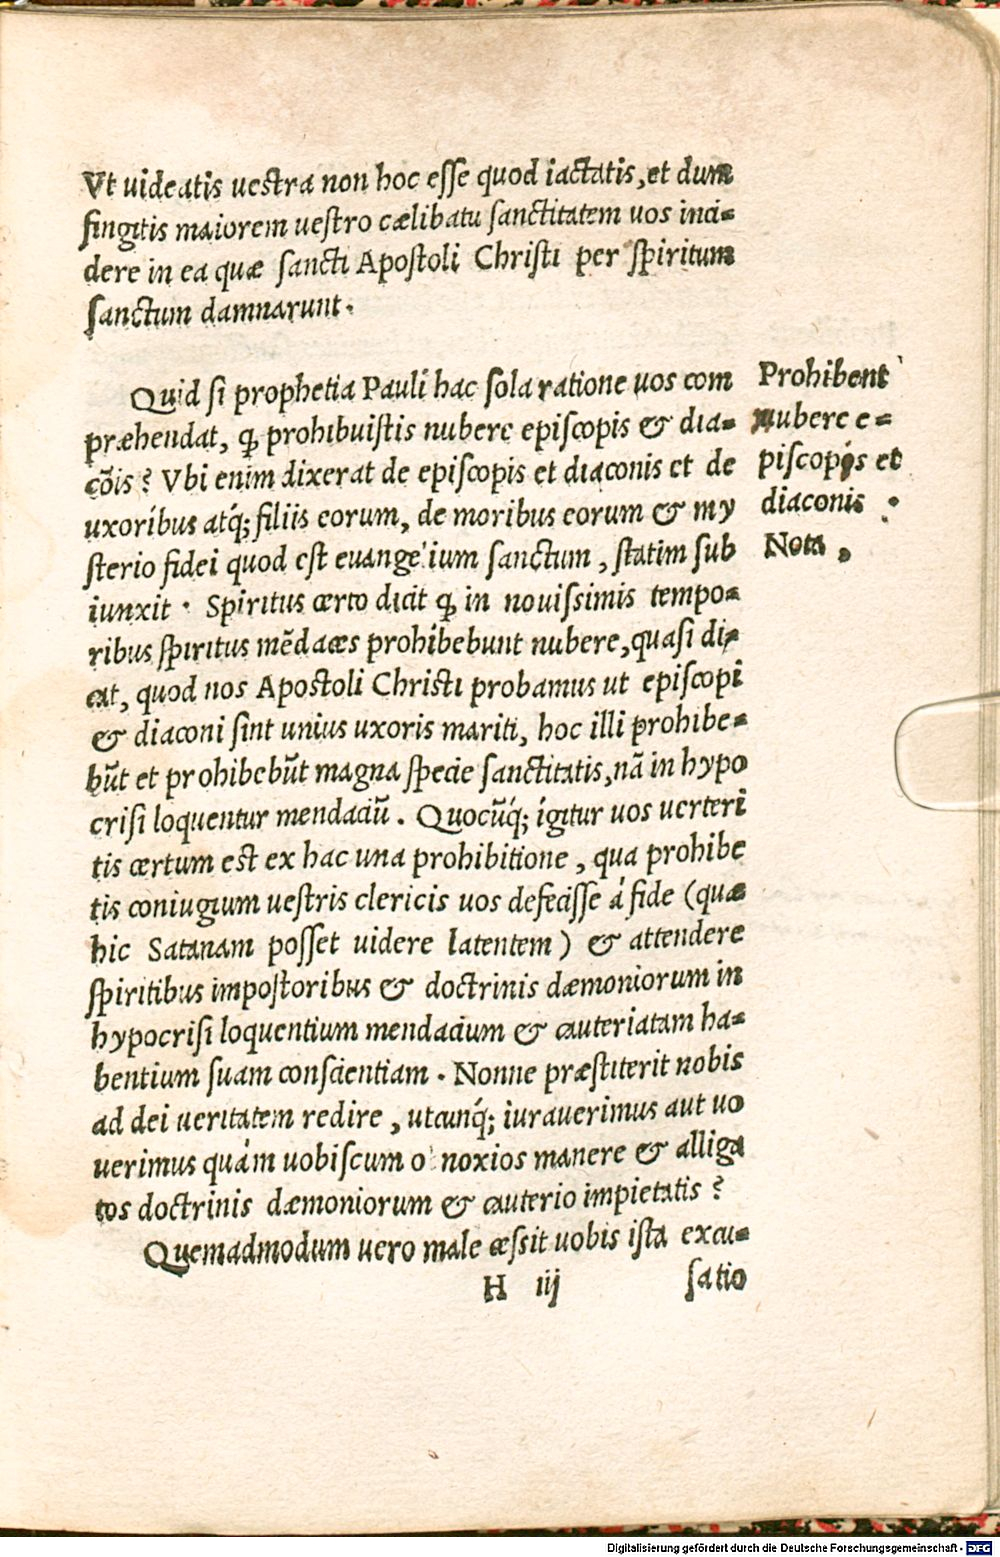 Vt uideatis uestra non hoc eſſe quod iactatis, et dum
fingitis maiorem ueſtro cælibatu ſanctitatem uos inci-
dere in ea quæ ſancti Apoſtoli Chriſti per ſpiritum
ſanctum damnarunt.
Quid ſi prophetia Pauli hac ſola ratione uos com
præhendat, ꝙ prohibuiſtis nubere epiſcopis & dia-
cõis? Vbi enim dixerat de epiſcopis et diaconis et de
uxoribus atq́; filiis eorum, de moribus eorum & my
ſterio fidei quod eſt euange ium ſanctum, ſtatim ſub
iunxit. Spiritus certo dicit ꝙ in nouiſſimis tempo-
ribus ſpiritus mẽdaces prohibebunt nubere, quaſi di-
cat, quod nos Apoſtoli Chriſti probamus ut epiſcopi
& diaconi ſint unius uxoris mariti, hoc illi prohibe-
bũt et prohibebũt magna ſpecie ſanctitatis, nã in hypo
criſi loquentur mendaciũ. Quocũq́; igitur uos uerteri
tis certum eſt ex hac una prohibitione, qua prohibe
tis coniugium ueſtris clericis uos defeciſſe á fide (quæ
hic Satanam poſſet uidere latentem) & attendere
ſpiritibus impoſtoribus & doctrinis dæmoniorum in
hypocriſi loquentium mendacium & cauteriatam ha-
bentium ſuam conſcientiam. Nonne præſtiterit nobis
ad dei ueritatem redire, utcunq́; iurauerimus aut uo
uerimus quám uobiſcum o noxios manere & alliga
tos doctrinis dæmoniorum & cauterio impietatis?
Quemadmodum uero male ceſſit uobis iſta excu-
H iij ſatio
Prohibent
nubere e-
piſcopis et
diaconis.
Nota.
Digitalisierung gefördert durch die Deutsche Forschungsgemeinschaft - DFG